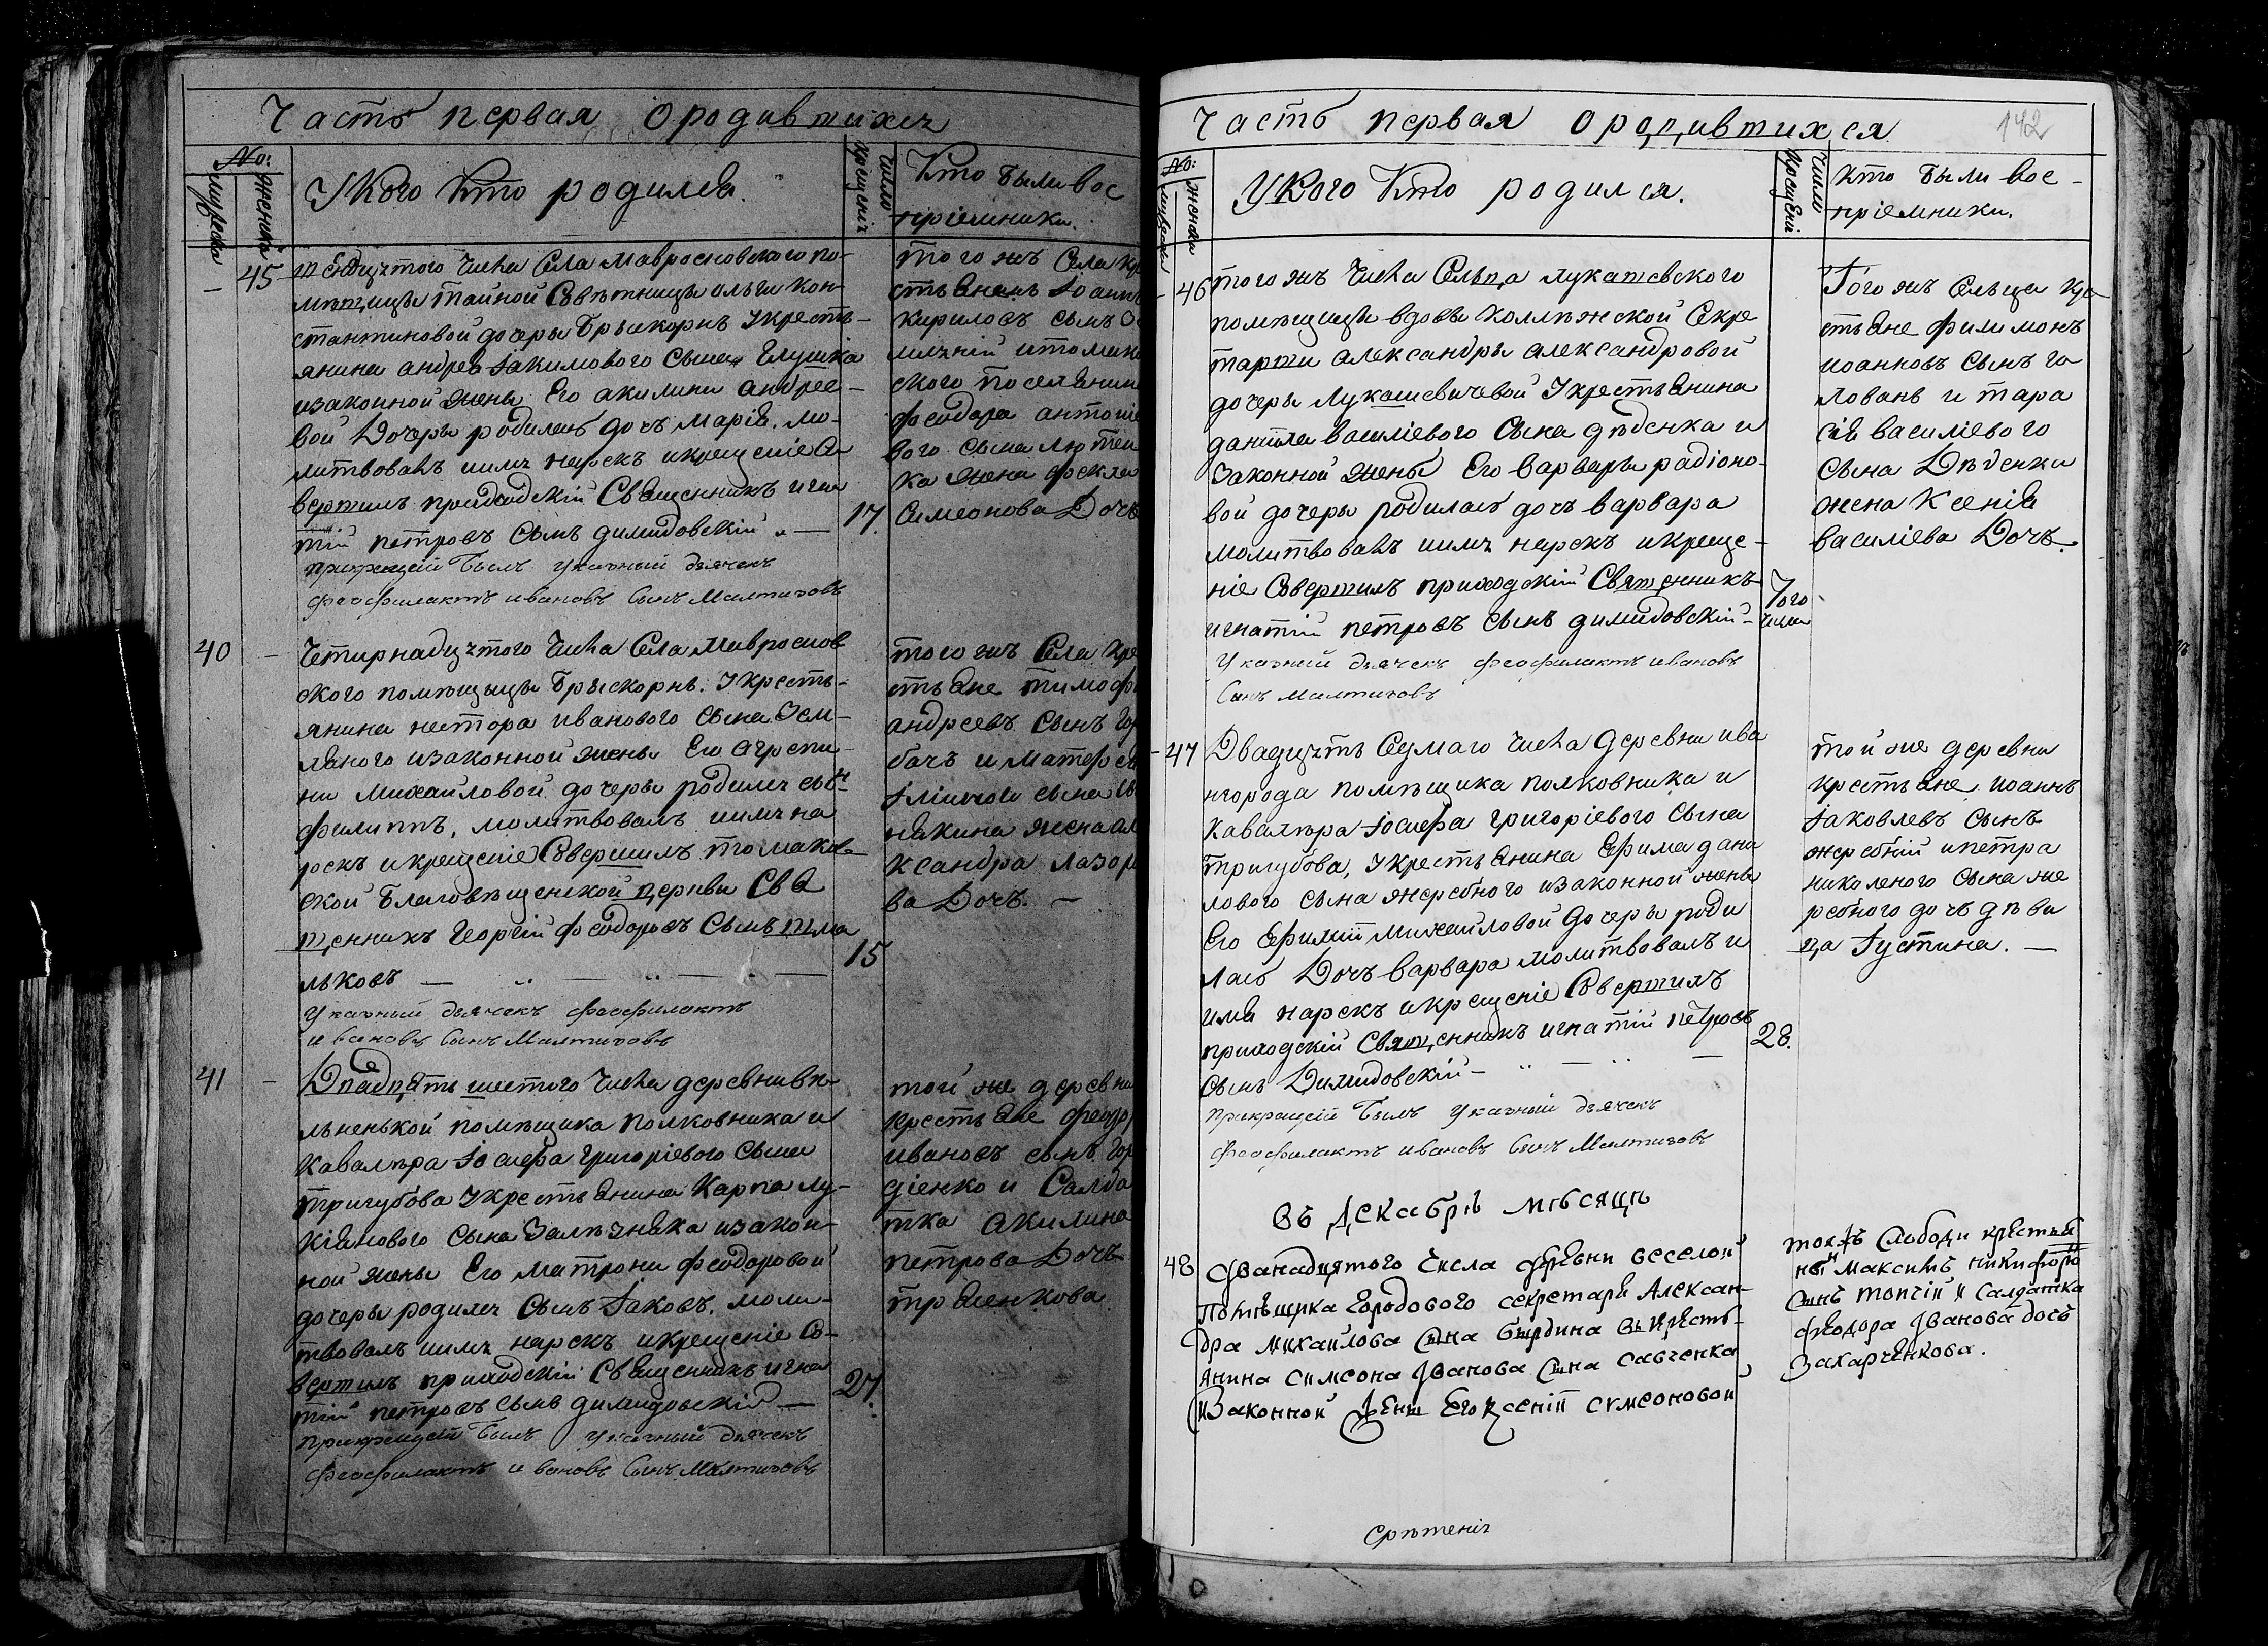 Часть первая о родившихся
No:
мужеска
женска
У кого кто родился.
Число
крещенія
Кто были вос
пріемники.
45
числа Села Мавросновского по-
мѣщицы тайной Совѣтницы ольги кон-
стантиновой дочеры Брыскорнъ У крестъ-
янина андрея Іакимового сына
изаконной жены Его акилини андрее-
вой Дочеры родилась дочъ Марія. мо-
литвовалъ имя нарекъ икрещеніе Со
вершилъ приходскій Священникъ игна
тій петровъ Сынъ димидовскій
прикрещеніи былъ указный дьячекъ
феофилактъ ивановъ Сынъ
17.
того жъ Села кре
стьянинъ Іоаннъ
кириловъ сынъ
итомако
ского поселянина
феодора антоніе
вого сына
ка жена фекла
Симеонова Дочъ
40
Четирнадцятого Числа Села Мавроснов
ского помѣщицы Брыскорнъ. У крестъ-
янина нестора иванового сына Зем-
ляного изаконной жены Его агрепи-
ни Михайловой дочеры родился сынъ
филиппъ, молитвовалъ имя на
рекъ икрещеніе Совершилъ томаков
ской Благовѣщенской церкви Свя
щенникъ Георгій феодоровъ Сынъ
льковъ
указный дьячекъ феофилактъ
ивановъ Сынъ
15
того жъ Села кре
стьяне тимофе
андреевъ Сынъ гор
бачъ и
сына
някина жена але
ксандра лазоре
ва Дочъ.
41
Двадцять шестого Числа деревни ви-
льненькой помѣщика полковника и
кавалѣра Іосифа григоріевого сына
тригубова У крестьянина Карпа лу-
кіянового сына Зализняка изакон-
ной жены Его Матрони феодоровой
дочеры родился Сынъ Іаковъ. моли-
твовалъ имя нарекъ икрещеніе Со-
вершилъ приходскій Священникъ игна
тій петровъ сынъ димидовскій
прикрещеніи былъ указный дьячекъ
феофилактъ ивановъ Сынъ
27.
той же деревни
крестьяне феодор
ивановъ сынъ гор
діенко и Салда
тка акилина
петрова Дочъ
трященкова
Часть первая о родившихся
142
No:
мужеска
женска
У кого кто родился.
Число
крещеній
Кто были вос-
пріемники.
46
того жъ Числа Сельца лукашевского
помѣщицы вдовы коллѣжской Секре
тарши александры александровой
дочеры Лукашевичевой У крестьянина
даніила василіевого Сына дѣденка и
Законной жены Его варвары радіоно-
вой дочеры родилась дочъ варвара
молитвовалъ имя нарекъ икреще-
ніе Совершилъ приходскій Священникъ
игнатій петровъ сынъ димидовскій-
указный дьячекъ феофилактъ ивановъ
Сынъ
Того
числа
Того жъ Сельца кре
стьяне филимонъ
иоанновъ сынъ го
ловань и тара
сія василіевого
сына Дѣденки
жена Ксенія
василіева Дочъ.
47
Двадцять Седмаго Числа деревни ива
нгорода помѣщика полковника и
кавалѣра Іосифа григоріевого сына
тригубова, У крестьянина Ефима дани
лового сына жеребного изаконной жены
Его Ефиміи Михайловой дочеры роди
лась Дочъ варвара молитвовалъ и
имя нарекъ икрещеніе Совершилъ
приходскій Священникъ игнатій петровъ
сынъ Димидовскій-
прикрещеніи былъ указный дьячекъ
феофилактъ ивановъ Сынъ
28.
той же деревни
крестьяне иоаннъ
Іаковлевъ сынъ
жеребній ипетра
николеного сына же
ребного дочъ дѣви
ца Іустина.
Въ Декабрѣ мѣсяцѣ
48
Дванадцятого числа деревни веселой
Помѣщика городового секретаря Алексан-
дра михаилова сына бырдина въ крестъ-
янина симеона Іванова сына савченка
изаконной жены Его ксеніи симеоновой
тояжъ слободи крестья
нинъ максимъ никифоро
сынъ топчій и салдатка
феодора Іванова дочь
Захарченкова.
Срѣтенія